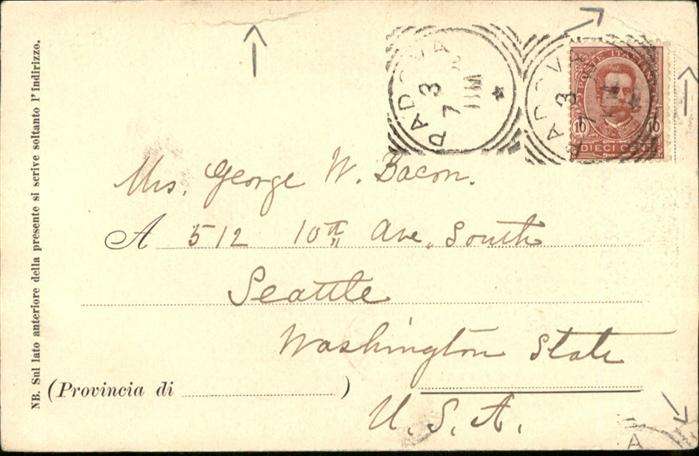 NB. Sul lato anteriore della presente si scrive soltanto l'indirizzo.
PADOVA
7 3
PADOVA
3
POSTE ITALIANE
10 10
DIECI
Mrs. George W. Bacon.
A 512 10th Ave, South
Seattle
Washington State
(Provincia di )
U. S. A.
A